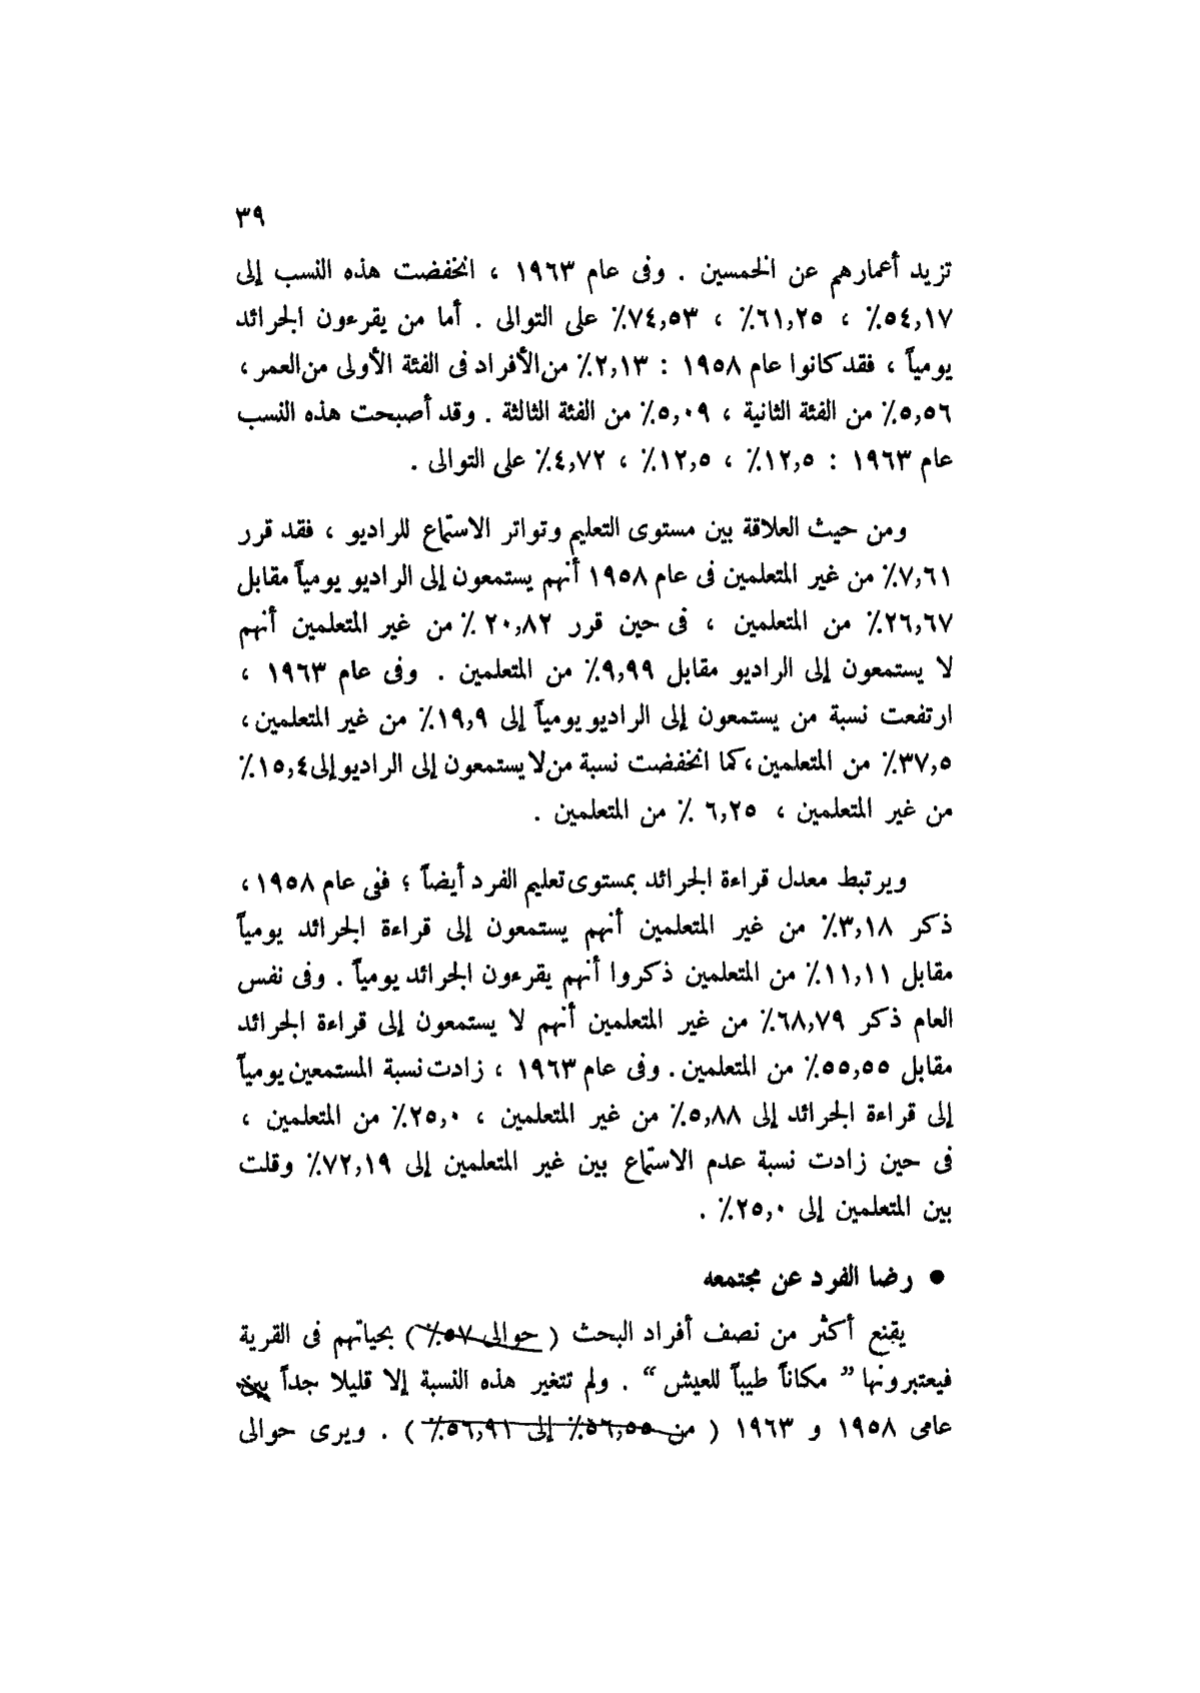 ٣٩
تزيد أعمارهم عن الخمسين . وفى عام ١٩٦٣ ، انخفضت هذه النسب إلى
٥٤,١٧٪ ، ٦١,٢٥٪ ، ٧٤,٥٣٪ على التوالى . أما من يقرءون الجرائد
يومياً ، فقد كانوا عام ١٩٥٨ : ٢,١٣٪ من الأفراد فى الفئة الأولى من العمر ،
٥,٥٦٪ من الفئة الثانية ، ٥,٠٩٪ من الفئة الثالثة . وقد أصبحت هذه النسب
عام ١٩٦٣ : ١٢,٥٪ ، ١٢,٥٪ ، ٤,٧٢٪ على التوالى .
ومن حيث العلاقة بين مستوى التعليم وتواتر الاستماع للراديو ، فقد قرر
٧,٦١٪ من غير المتعلمين فى عام ١٩٥٨ أنهم يستمعون إلى الراديو يومياً مقابل
٢٦,٦٧٪ من المتعلمين ، فى حين قرر ٢٠,٨٢ ٪ من غير المتعلمين أنهم
لا يستمعون إلى الراديو مقابل ٩,٩٩٪ من المتعلمين . وفى عام ١٩٦٣ ،
ارتفعت نسبة من يستمعون إلى الراديو يومياً إلى ١٩,٩٪ من غير المتعلمين ،
٣٧,٥٪ من المتعلمين ، كما انخفضت نسبة من لا يستمعون إلى الراديو إلى ١٥,٤٪
من غير المتعلمين ، ٦,٢٥ ٪ من المتعلمين .
ويرتبط معدل قراءة الجرائد بمستوى تعليم الفرد أيضاً ؛ فنى عام ١٩٥٨ ،
ذكر ٣,١٨٪ من غير المتعلمين أنهم يستمعون إلى قراءة الجرائد يومياً
مقابل ١١,١١٪ من المتعلمين ذكروا أنهم يقرءون الجرائد يومياً . وفى نفس
العام ذكر ٦٨,٧٩٪ من غير المتعلمين أنهم لا يستمعون إلى قراءة الجرائد
مقابل ٥٥,٥٥٪ من المتعلمين . وفى عام ١٩٦٣ ، زادت نسبة المستمعين يومياً
إلى قراءة الجرائد إلى ٥,٨٨٪ من غير المتعلمين ، ٢٥,٠٪ من المتعلمين ،
فى حين زادت نسبة عدم الاستماع بين غير المتعلمين إلى ٧٢,١٩٪ وقلت
بين المتعلمين إلى ٢٥,٠٪ .
● رضا الفرد عن مجتمعه
يقنع أكثر من نصف أفراد البحث ( حوالى ٥٧٪ ) بحياتهم فى القرية
فيعتبرونها ” مكاناً طيباً للعيش “ . ولم تتغير هذه النسبة إلا قليلا جداً بين
عامى ١٩٥٨ و ١٩٦٣ ( من ٥٦,٥٥٪ إلى ٥٦,٩١٪ ) . ويرى حوالى